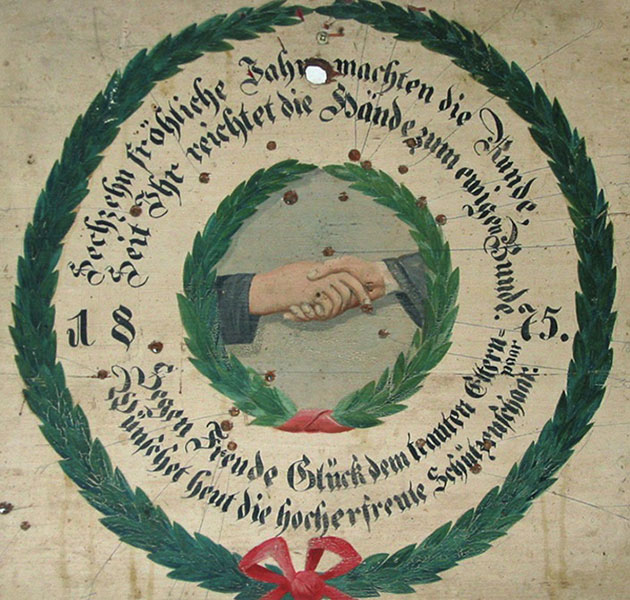 Sechzehn fröhliche Jahre machten die Runde,
Seit Ihr reichtet die Hände zum ewigen Bunde.
18 75.
Segen Freude Glück dem trauten Eltern=
paar
Wünschet heut die hocherfreute Schützenschaar.